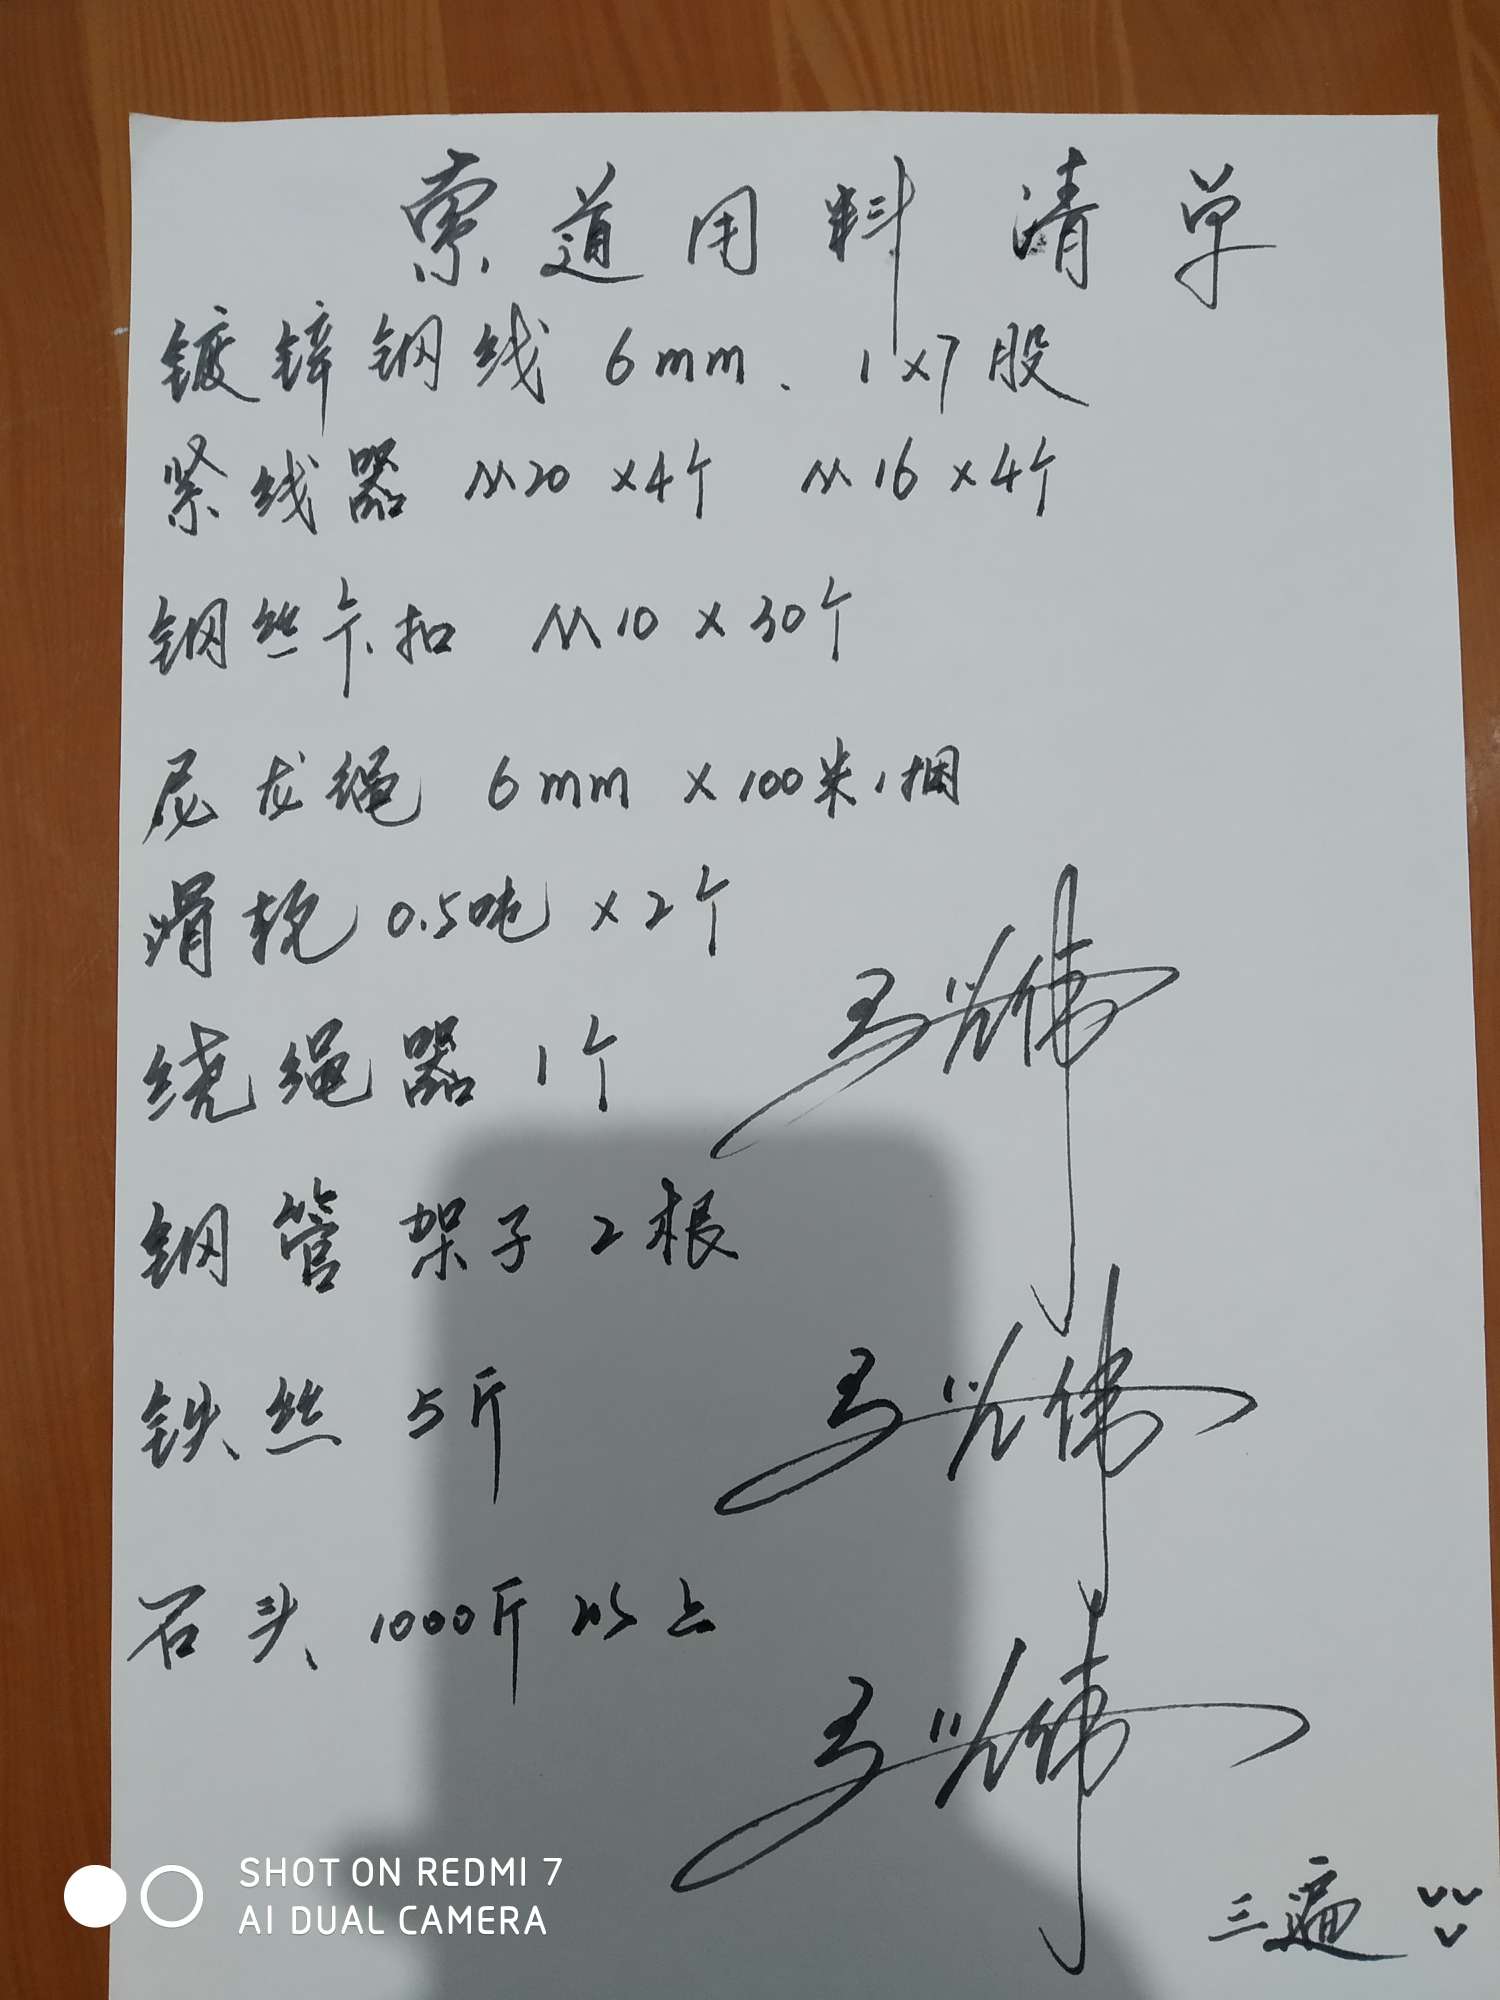 索道用料清单
镀锌钢线 6mm、1×7股
紧线器 M20 ×4个 M16 ×4个
钢丝卡扣 M10 ×30个
尼龙绳 6mm ×100米1捆
滑轮 0.5吨 ×2个
绕绳器 1个
钢管架子2根
铁丝 5斤
石头 1000斤以上
三遍
SHOT ON REDMI 7
AI DUAL CAMERA